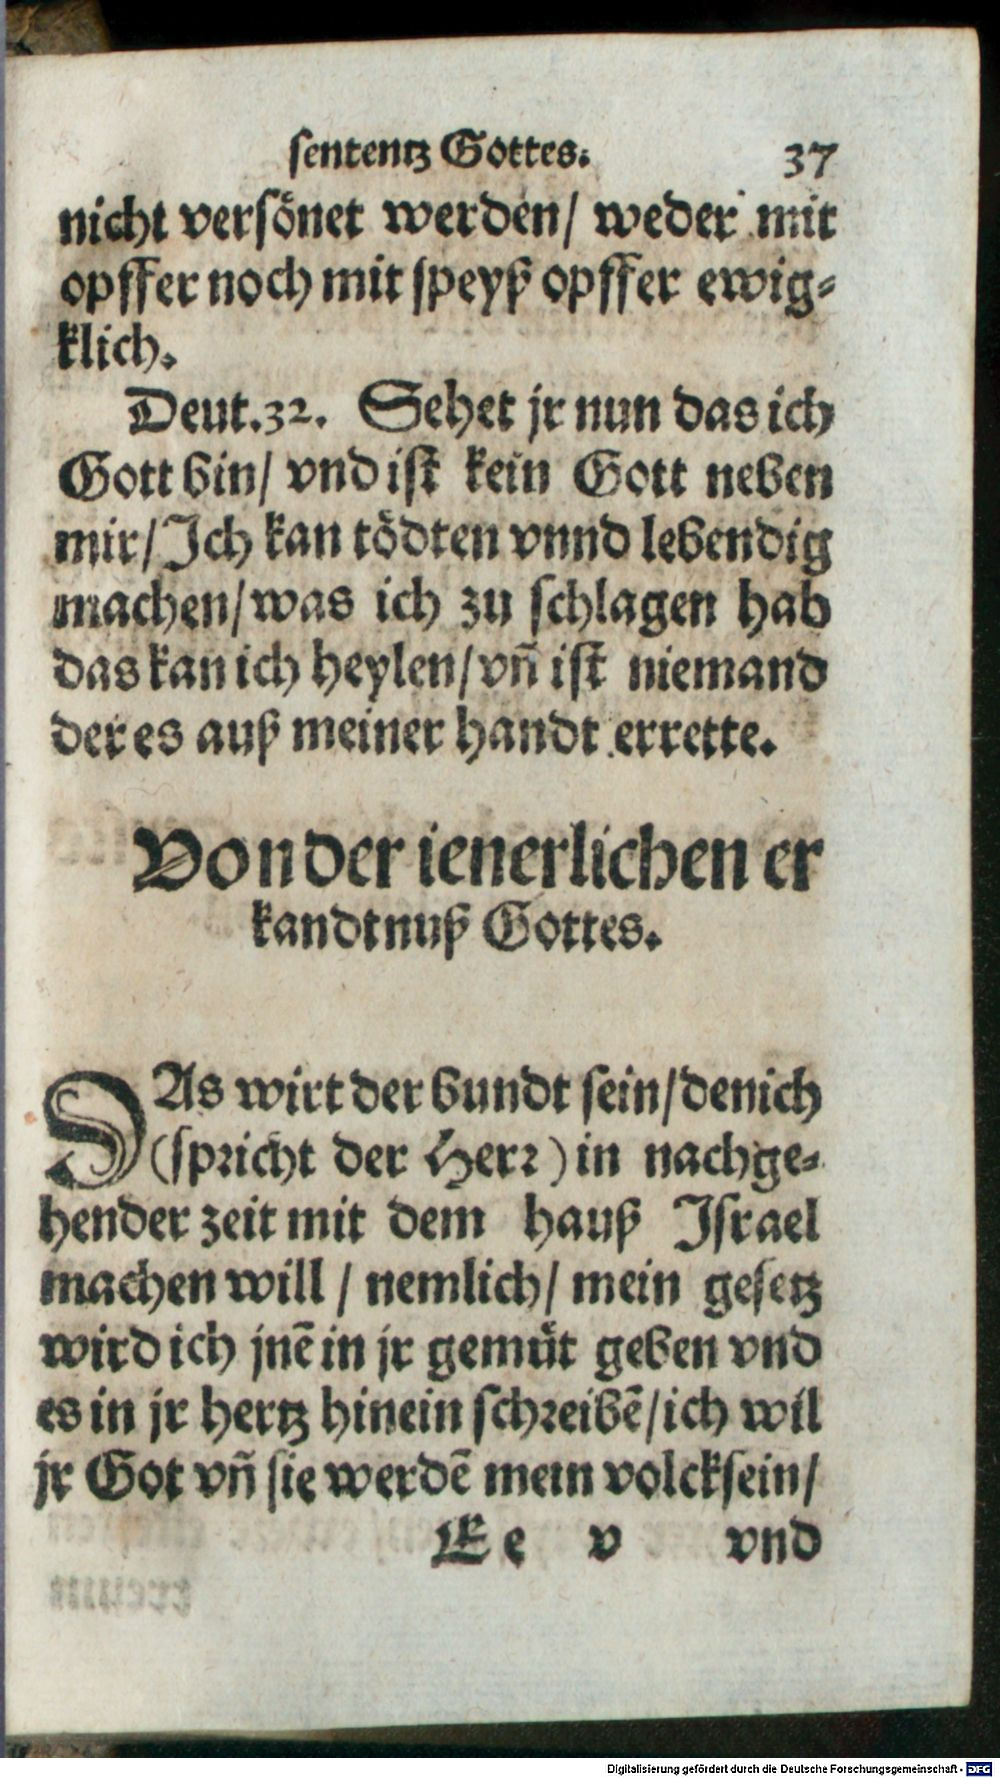 sententz Gottes. 37
nicht versönet werden/ weder mit
opffer noch mit speyß opffer ewig-
klich.
Deut.32. Sehet jr nun das ich
Gott bin/ vnd ist kein Gott neben
mir/ Ich kan tödten vnnd lebendig
machen/ was ich zu schlagen hab
das kan ich heylen/ vñ ist niemand
der es auß meiner handt errette.
Von der ienerlichen er
kandtnuß Gottes.
DAs wirt der bundt sein/ den ich
(spricht der Herr) in nachge-
hender zeit mit dem hauß Israel
machen will / nemlich/ mein gesetz
wird ich jnē in jr gemuͤt geben vnd
es in jr hertz hinein schreibē/ ich wil
jr Got vñ sie werdē mein volck sein/
Ee v vnd
Digitalisierung gefördert durch die Deutsche Forschungsgemeinschaft - DFG